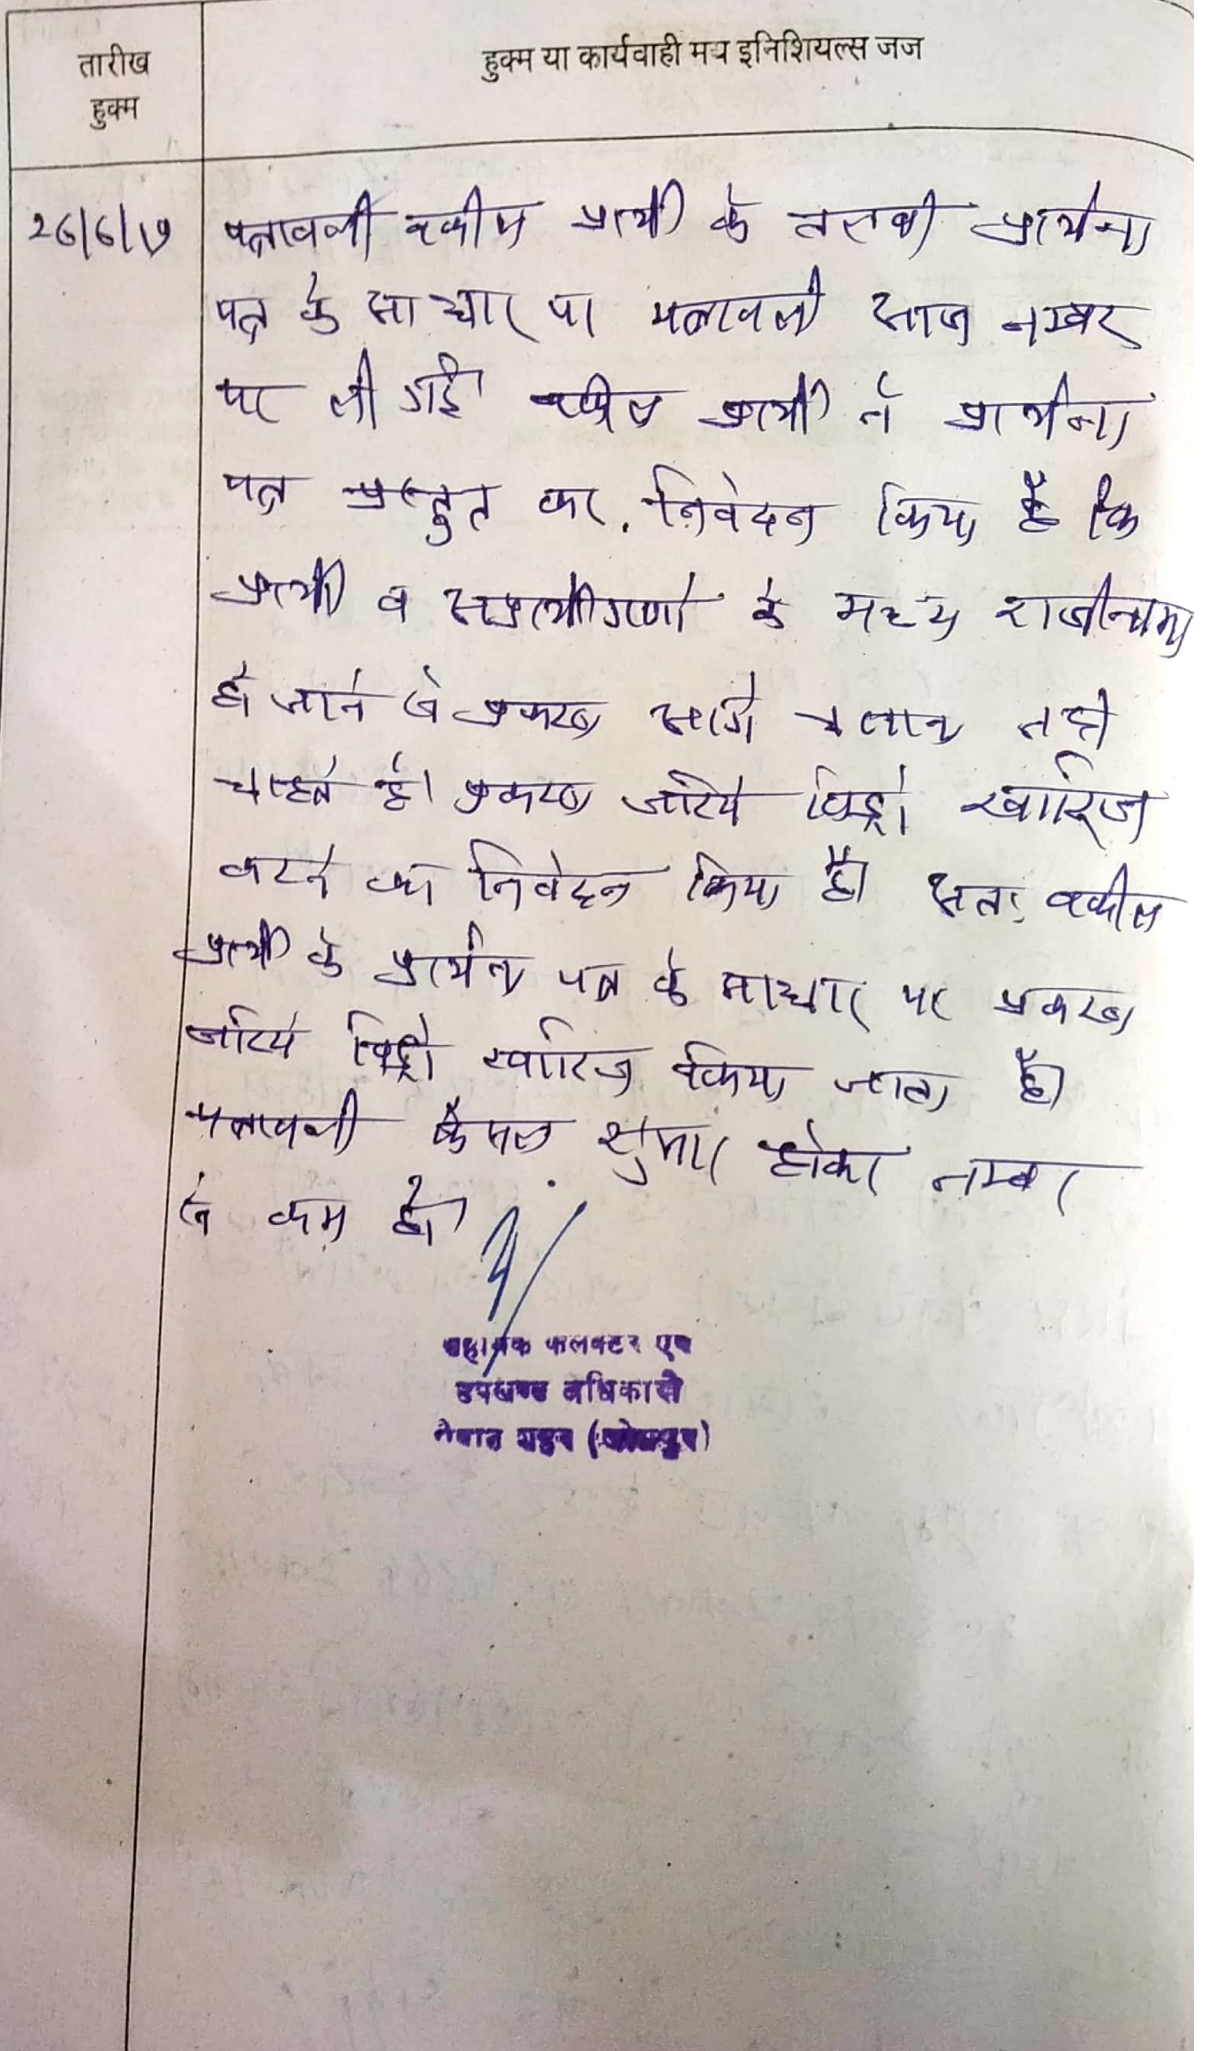 तारीख
हुक्म
हुक्म या कार्यवाही मय इनिशियल्स जज
26/6/17 पत्रावली वकील प्रार्थी के तलबी प्रार्थना
पत्र के आधार पर पत्रावली आज नम्बर
पर ली गई। वकील प्रार्थी ने प्रार्थना
पत्र प्रस्तुत कर निवेदन किया है कि
प्रार्थी व अप्रार्थीगणों के मध्य राजीनामा
हो जाने से प्रकरण आगे चलाना नहीं
चाहते है। प्रकरण जरिये विड्रो खारिज
करने का निवेदन किया है। अतः वकील
प्रार्थी के प्रार्थना पत्र के आधार पर प्रकरण
जरिये विड्रो खारिज किया जाता है।
पत्रावली फैसल शुमार होकर नम्बर
से कम हो।
सहायक कलक्टर एवं
उपखण्ड अधिकारी